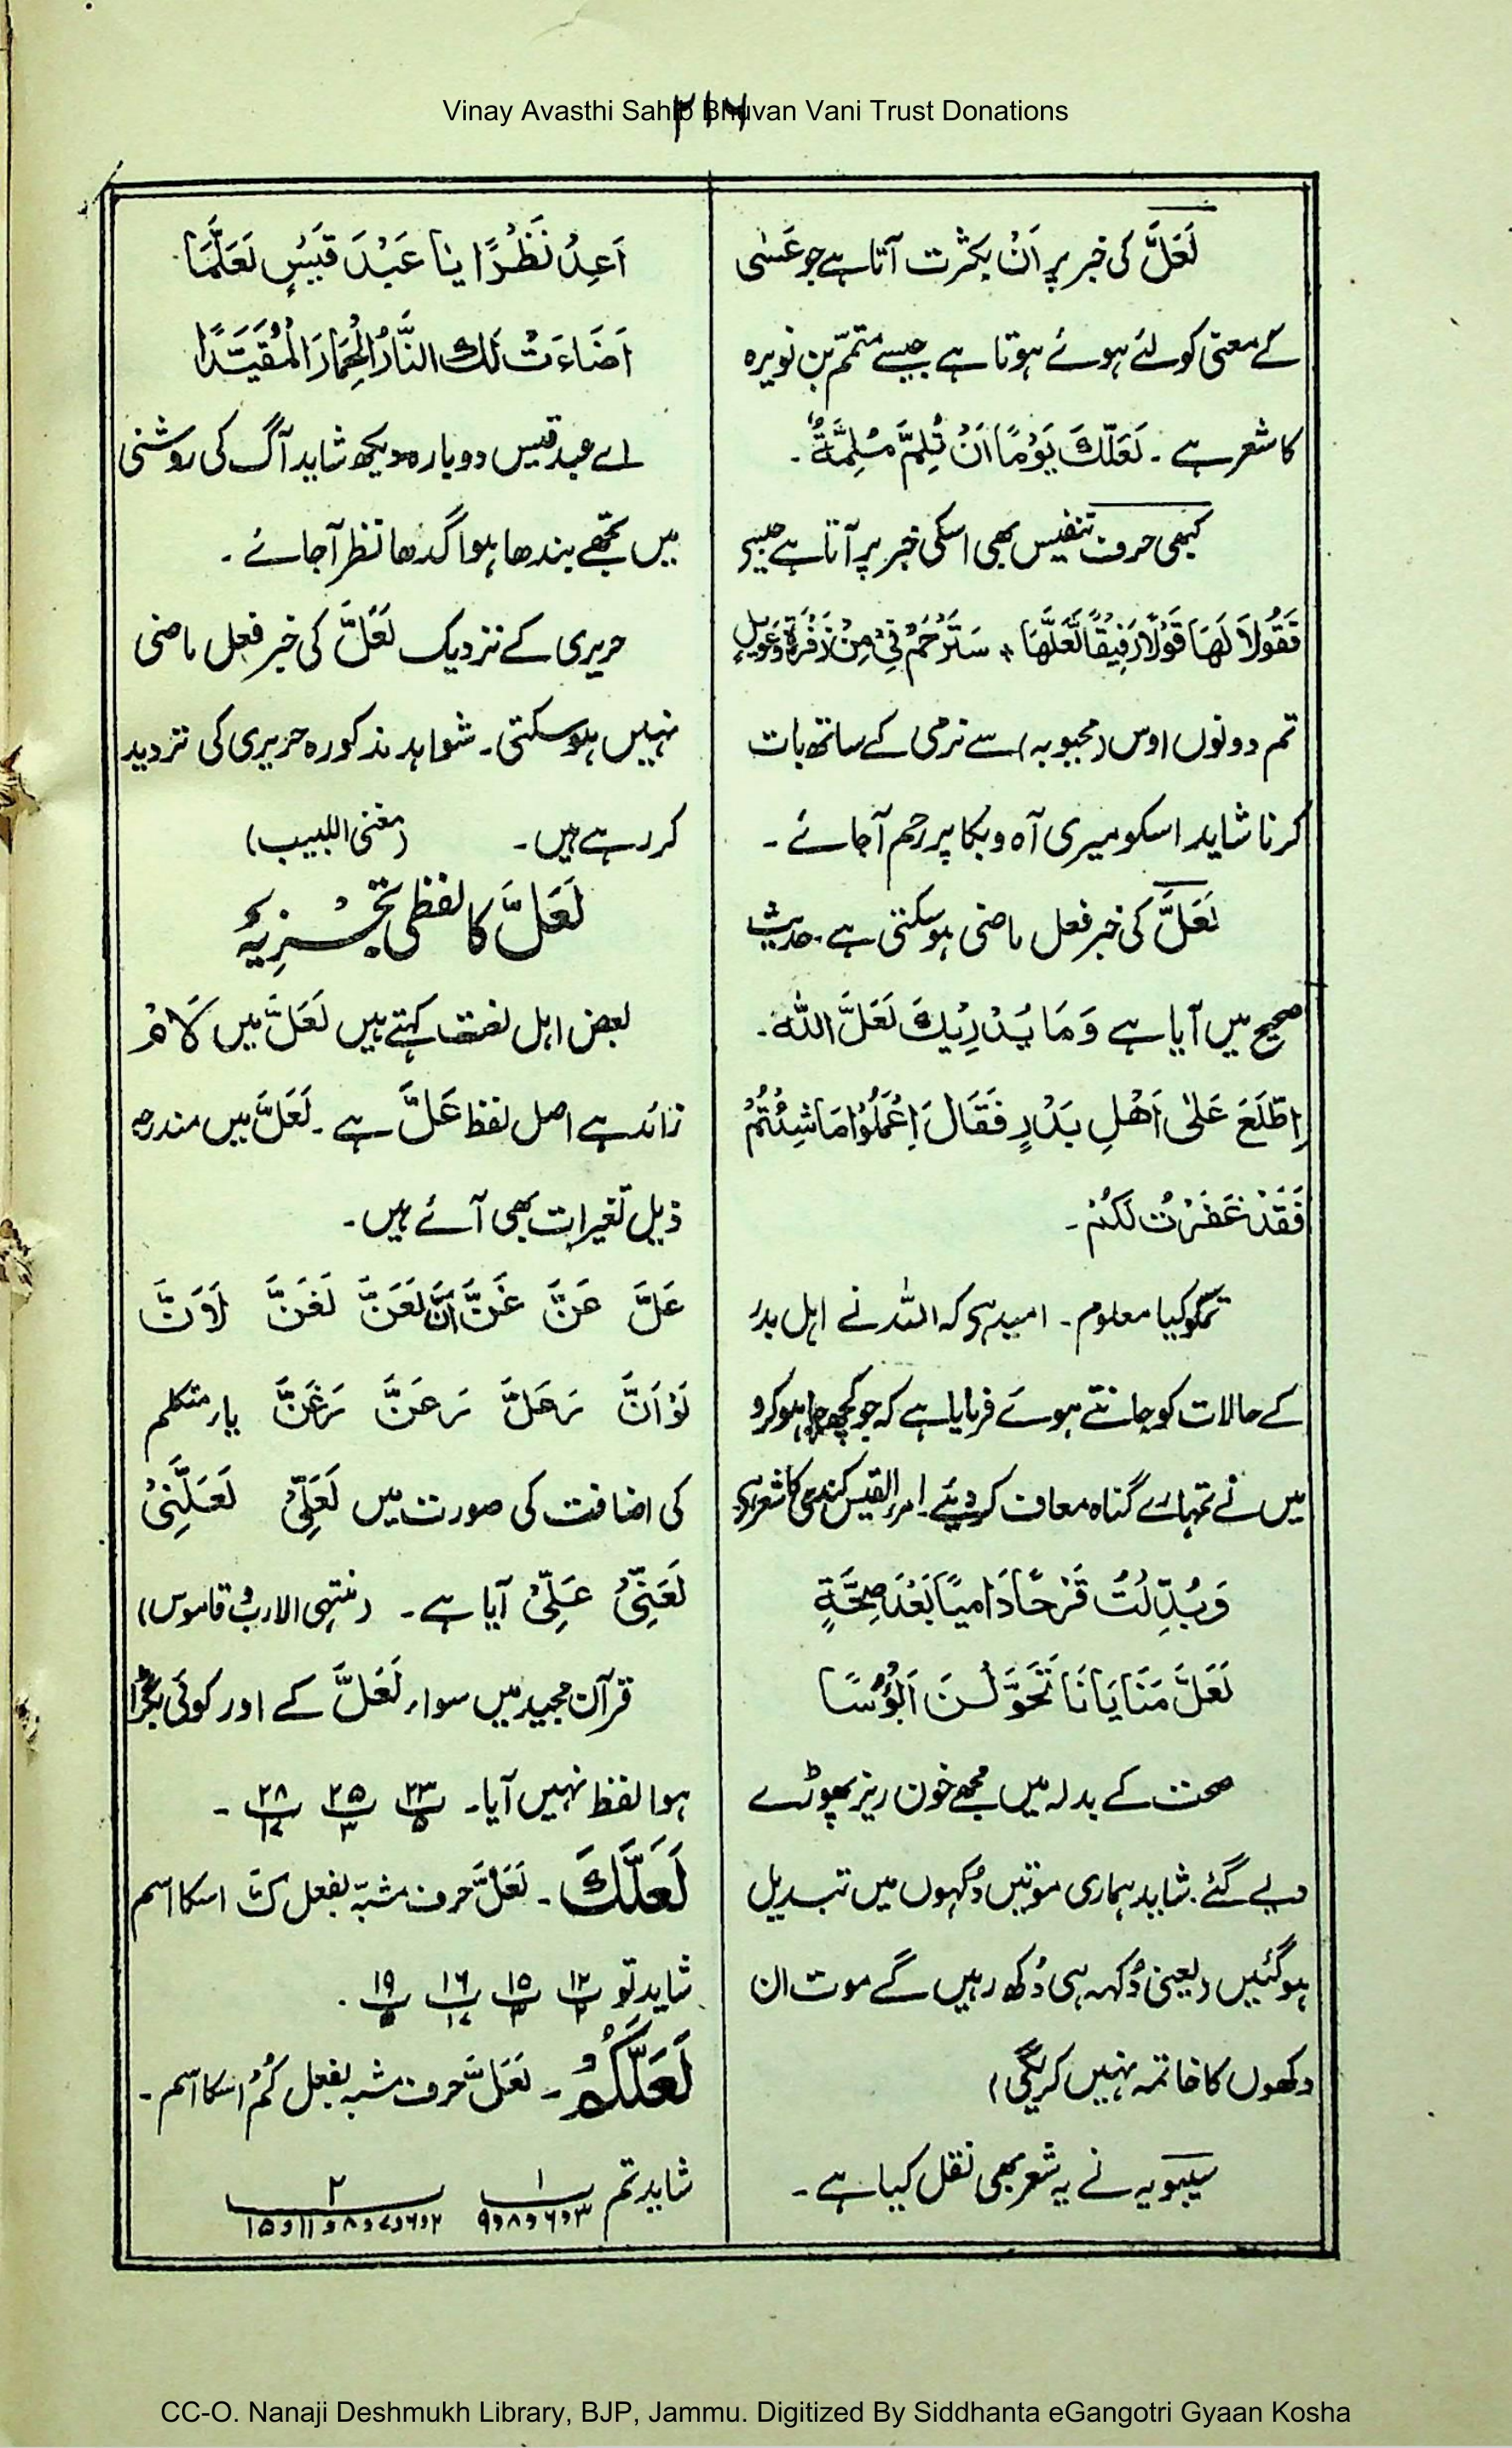 Vinay Avasthi Sahib Bhuvan Vani Trust Donations
۲۱۷
لَعَلَّ کی خبر پر اَنْ بکثرت آتا ہے جو عَسٰی
کے معنی کو لئے ہوئے ہوتا ہے جیسے متممّ بن نویرہ
کا شعر ہے ۔ لَعَلَّكَ يَوْمًا اَنْ تُلِمَّ مُلِمَّةٌ ۔
کبھی حروف تنفیس بھی اسکی خبر پر آتا ہے جیسے
فَقُولَا لَهَا قَوْلًا رَفِيْقًا لَّعَلَّهَا + سَتَرْحَمُنِيْ مِنْ زَفْرَةٍ وَعَوِيْلٍ
تم دونوں اوس (محبوبہ) سے نرمی کے ساتھ بات
کرنا شاید اسکو میری آہ و بکا پر رحم آجائے ۔
لَعَلَّ کی خبر فعل ماضی ہوسکتی ہے ۔ حدیث
صحیح میں آیا ہے وَمَا يُدْرِيْكَ لَعَلَّ اللهَ ۔
اِطَّلَعَ عَلٰى اَهْلِ بَدْرٍ فَقَالَ اِعْمَلُوْا مَا شِئْتُمْ
فَقَدْ غَفَرْتُ لَكُمْ ۔
تمکو کیا معلوم ۔ امید ہی کہ اللہ نے اہل بدر
کے حالات کو جانتے ہوئے فرمایا ہے کہ جو کچھ چاہو کرو
میں نے تمہارے گناہ معاف کردیئے ۔ امرء القیس کندی کا شعر ہی
وَبُدِّلْتُ قَرْحًا دَامِيًا بَعْدَ صِحَّةٍ
لَعَلَّ مَنَايَانَا تَحَوَّلْنَ اَبْؤُسًا
صحت کے بدلہ میں مجھے خون ریز پھوڑے
دیے گئے ۔ شاید ہماری موتیں دُکہوں میں تبدیل
ہوگئیں (یعنی دُکہہ ہی دُکھ رہیں گے موت ان
دکھوں کا خاتمہ نہیں کریگی)
سیبویہ نے یہ شعر بھی نقل کیا ہے ۔
اَعِدْ نَظْرًا يَا عَبْدَ قَيْسٍ لَعَلَّمَا
اَضَاءَتْ لَكَ النَّارُ الْحِمَارَ الْمُقَيَّدَا
اے عبد قیس دوبارہ دیکھ شاید آگ کی روشنی
میں تجھے بندھا ہوا گدھا نظر آجائے ۔
حریری کے نزدیک لَعَلَّ کی خبر فعل ماضی
نہیں ہوسکتی ۔ شواہد مذکورہ حریری کی تردید
کر رہے ہیں ۔ (مغنی اللبیب)
لَعَلَّ کا لفظی تجْزِیَہ
بعض اہل لغت کہتے ہیں لَعَلَّ میں لَامْ
زائد ہے اصل لفظ عَلَّ ہے ۔ لَعَلَّ میں مندرجہ
ذیل تغیرات بھی آئے ہیں ۔
عَلَّ عَنَّ غَنَّ اَنَّ لَعَنَّ لَغَنَّ لَاَنَّ
لَوْاَنَّ رَعَلَّ رَعَنَّ رَغَنَّ یار متکلم
کی اضافت کی صورت میں لَعَلِّيْ لَعَلَّنِيْ
لَعَنِّيْ عَلِّيْ آیا ہے ۔ (منتہی الارب و قاموس)
قرآن مجید میں سواء لَعَلَّ کے اور کوئی بگڑا
ہوا لفظ نہیں آیا ۔ ۲۳/۵ ۲۵/۳ ۲۸/۱۷ ۔
لَعَلَّكَ ۔ لَعَلَّ حرف مشبّہ بفعل كَ اسکا اسم
شاید تو ۱۲/۲ ۱۵/۳ ۱۶/۱۷ ۱۹/۵ ۔
لَعَلَّكُمْ ۔ لَعَلَّ حرف مشبہ بفعل كُمْ اسکا اسم ۔
شاید تم ۱/۳و۶و۸و۹ ۲/۲و۶و۷و۸و۱۱و۱۵
CC-O. Nanaji Deshmukh Library, BJP, Jammu. Digitized By Siddhanta eGangotri Gyaan Kosha